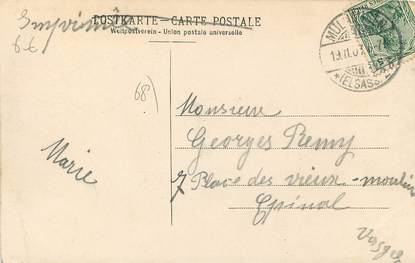 Imprimé
POSTKARTE - CARTE POSTALE
Weltpostverein - Union postale universelle
66
68)
MÜL
19.11.07
*(ELSASS)
Monsieur
Georges Remy
7 Place des vieux-moulins
Epinal
Vosges
Marie